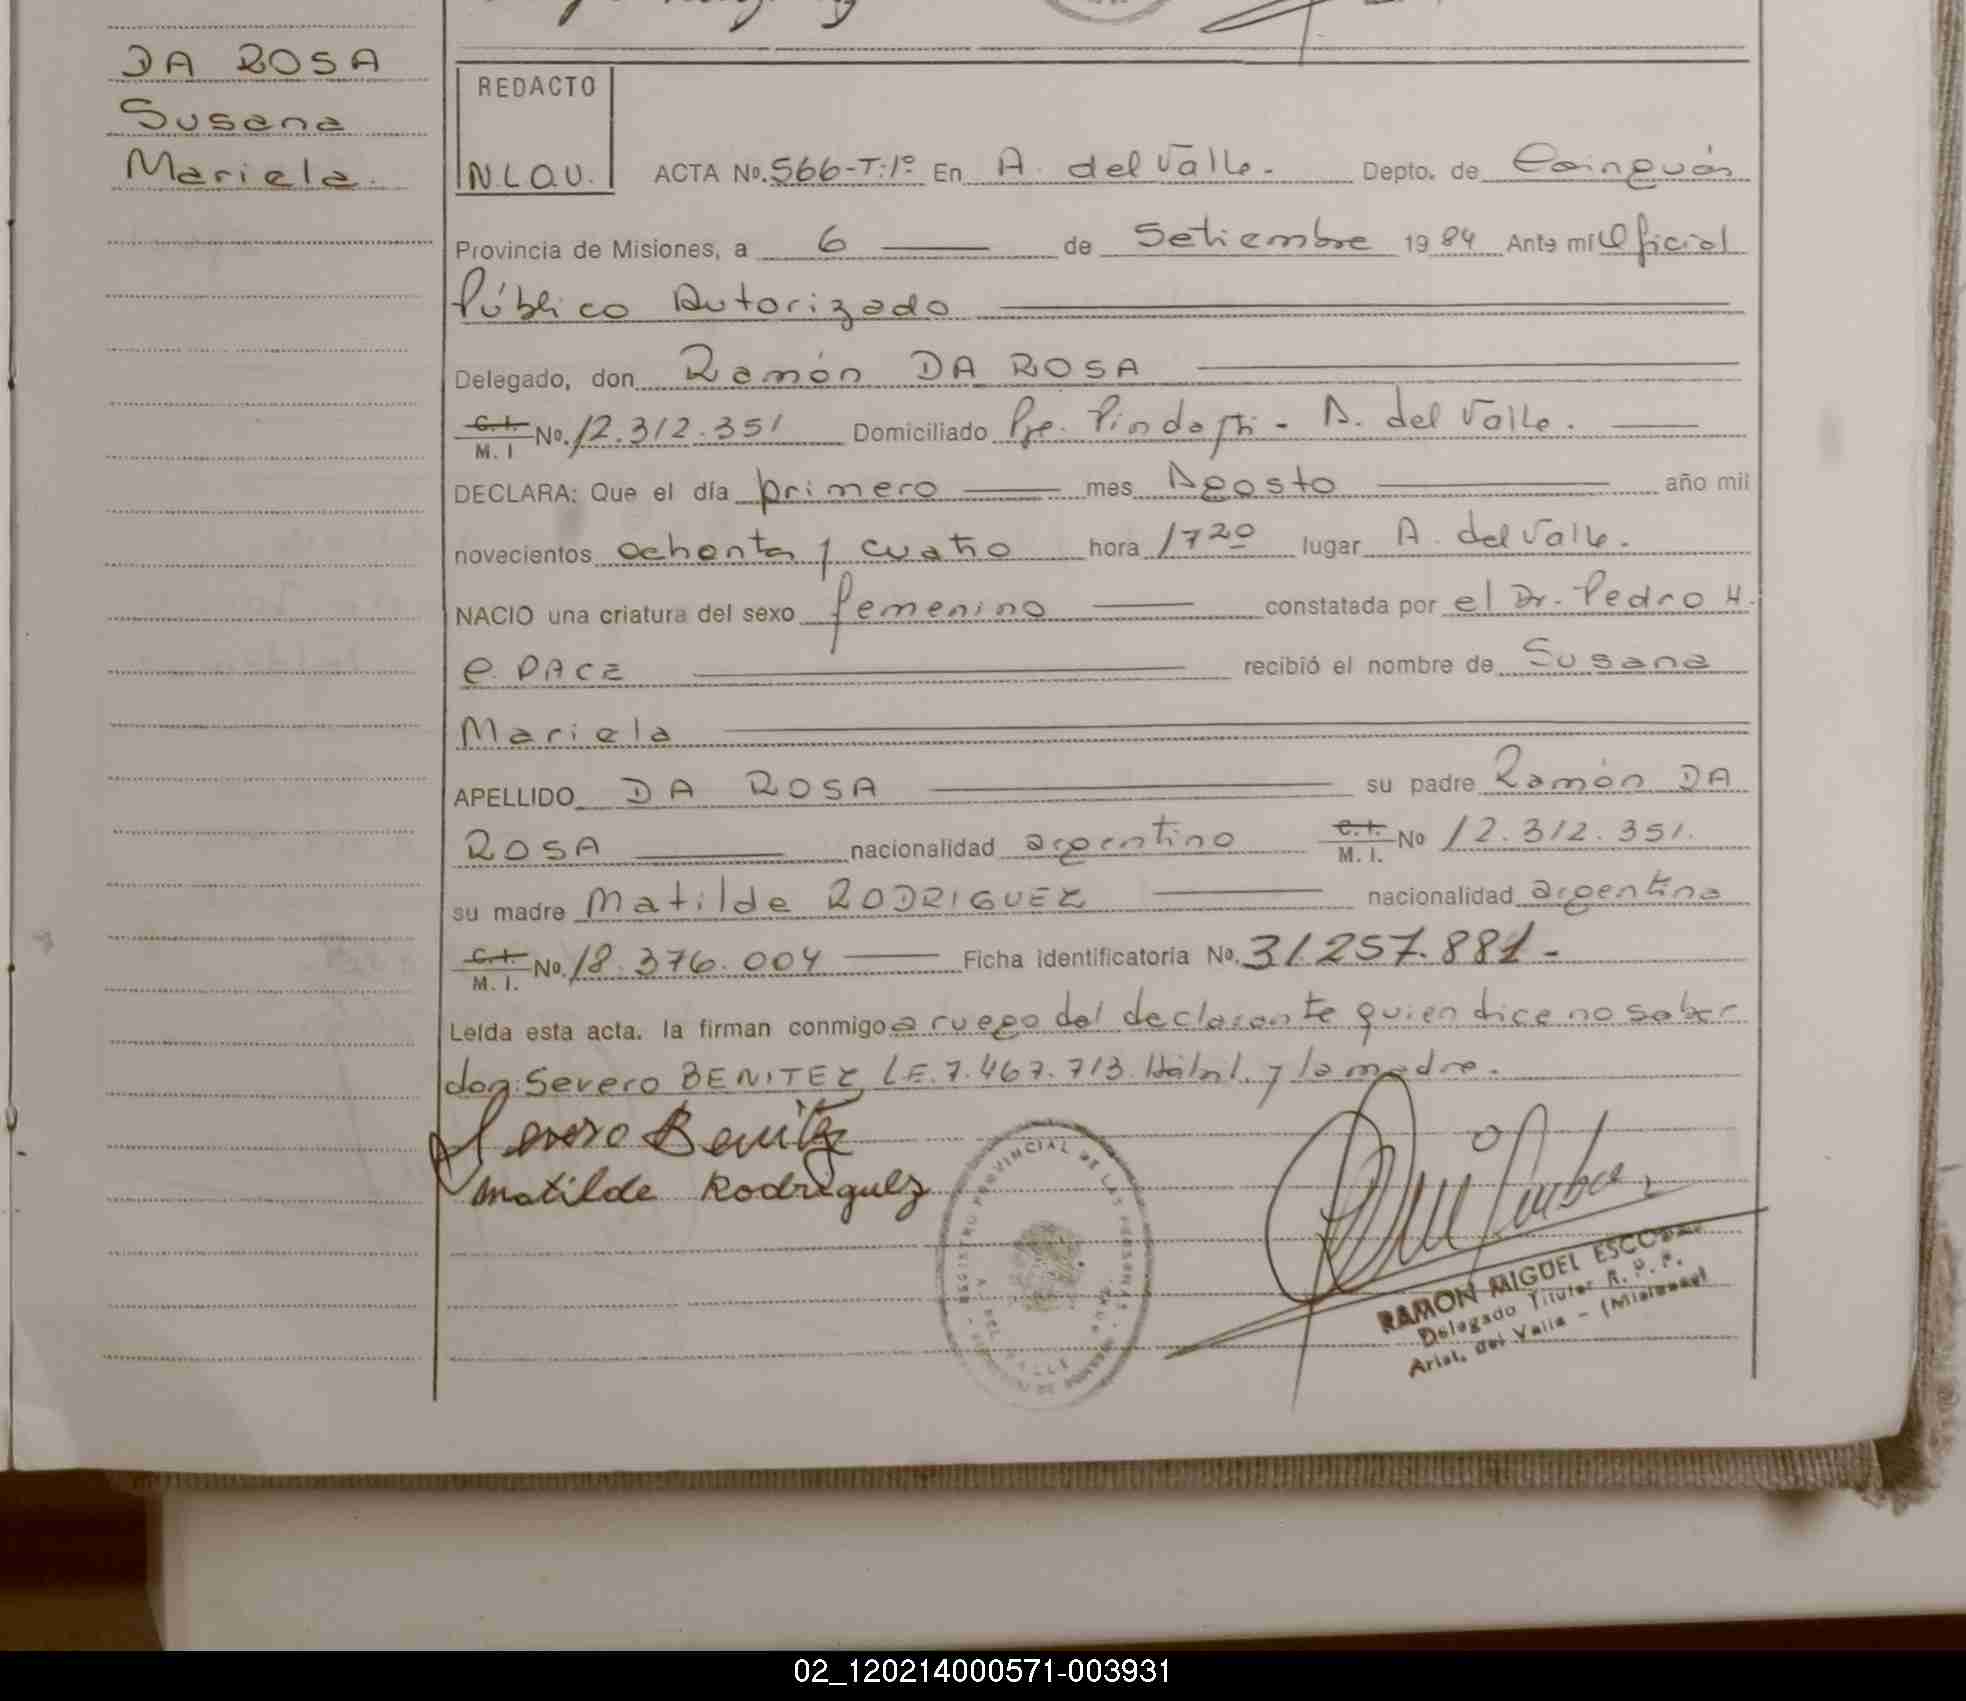 DA ROSA
Susana
Mariela.
REDACTO
N.L.O.V.
ACTA No. 566-T:1º En A. del Valle. Depto. de Cainguás
Provincia de Misiones, a 6 de Setiembre 1984 Ante mí Oficial
Público Autorizado
Delegado, don Ramón DA ROSA
C.I. M.I No. 12.312.351 Domiciliado Pje. Pindaytí - A. del Valle.
DECLARA: Que el día primero mes Agosto año mil
novecientos ochenta y cuatro hora 1720 lugar A. del Valle.
NACIO una criatura del sexo femenino constatada por el Dr. Pedro H.
e. PACE recibió el nombre de Susana
Mariela
APELLIDO DA ROSA su padre Ramón DA
ROSA nacionalidad argentino C.I. M.I. No 12.312.351.
su madre Matilde RODRIGUEZ nacionalidad argentina
C.I. M.I. No. 18.376.004 Ficha identificatoria No. 31.257.881-
Leída esta acta. la firman conmigo a ruego del declarante quien dice no saber
don: Severo BENITEZ L.E. 7.467.713. Hábil. y la madre.
Severo Benitez
Matilde Rodriguez
REGISTRO PROVINCIAL DE LAS PERSONAS
A. DEL VALLE
RAMON MIGUEL ESCOBAR
Delegado Titular R. P. P.
Arist. del Valle - (Misiones)
02_120214000571-003931